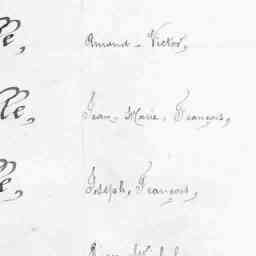 lle, Amand - Victor,
lle, Jean - Marie, François,
lle, Joseph, François,